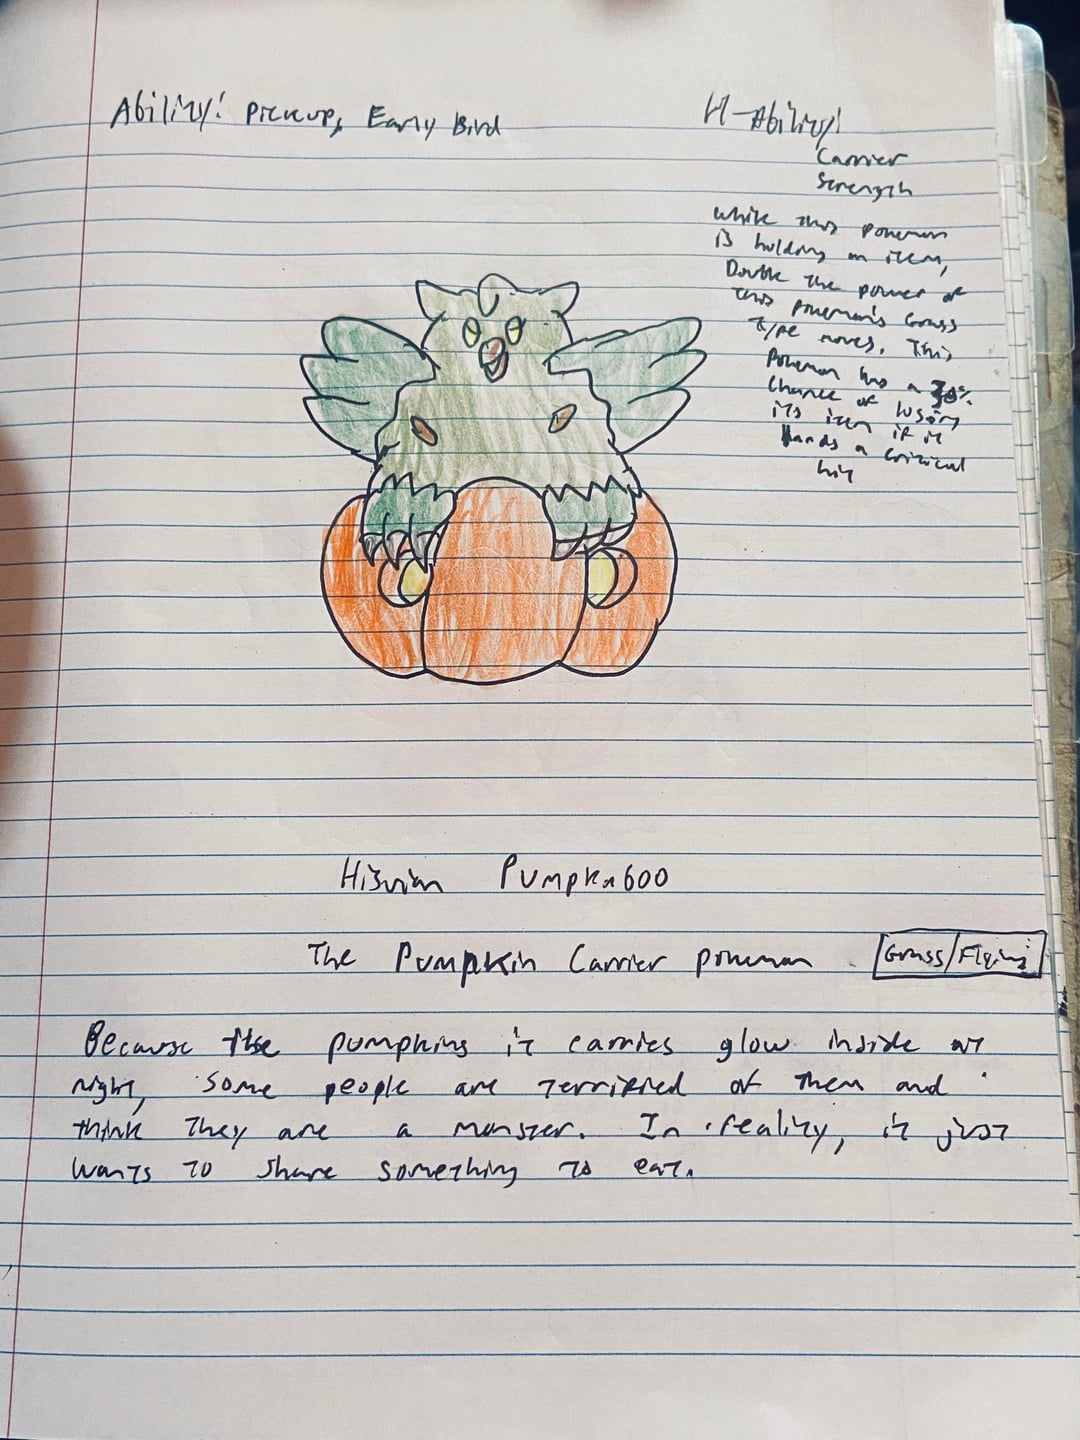 Ability: Pickup, Early Bird
H-Ability:
Carrier
Strength
While this pokemon
is holding an item,
Double the power of
this pokemon's Grass
Type moves. This
Pokemon has a 30%
chance of losing
its item if it
lands a critical
hit
Hisuian Pumpkaboo
The Pumpkin Carrier pokemon
Grass/Flying
Because the pumpkins it carries glow inside at
night, some people are terrified of them and
think they are a monster. In reality, it just
wants to share something to eat.